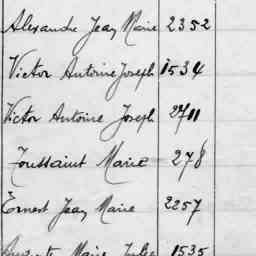 Alexandre Jean Marie 2352
Victor Antoine Joseph 1534
Victor Antoine Joseph 2711
Toussaint Marie 278
Ernest Jean Marie 2257
Auguste Marie Jules 1535